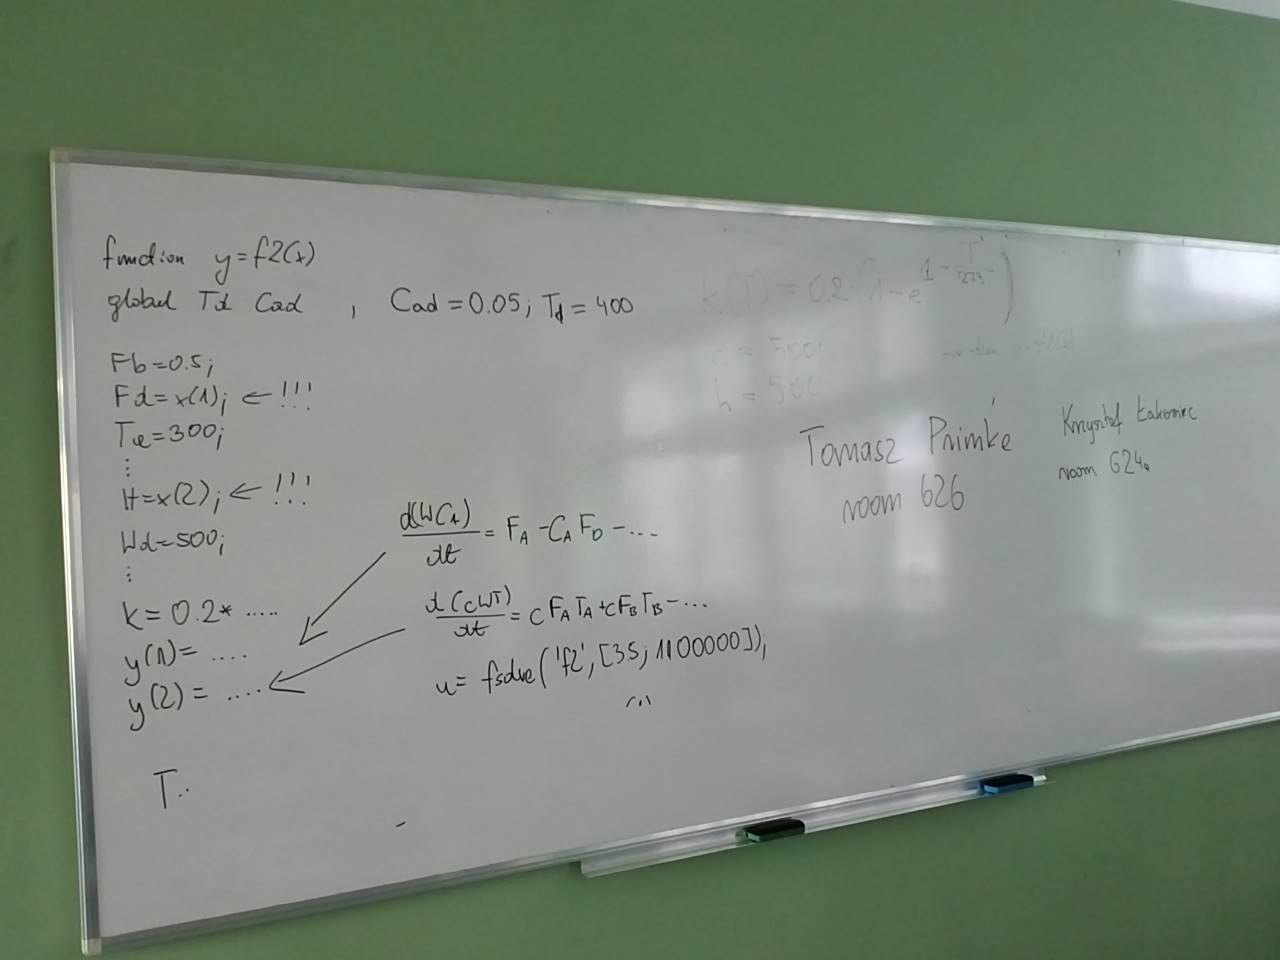 function y=f2(x)
global Td Cad , Cad = 0.05; Td = 400
Fb=0.5;
Fd=x(1); ← !!!
Ta=300;
⋮
H=x(2); ← !!!
Wd=500;
⋮
k=0.2* .....
y(1)= ....
y(2)= ....
T..
d(WCA)/dt = FA - CA FD - ...
d(cWT)/dt = c FA TA + c FB TB - ...
u= fsolve('f2',[35; 1100000]);
k(T) = 0.2 · (1 - e^(1 - T/273))
c = 500
h = 500
Tomasz Primke
room 626
Krzysztof Łakomiec
room 624a